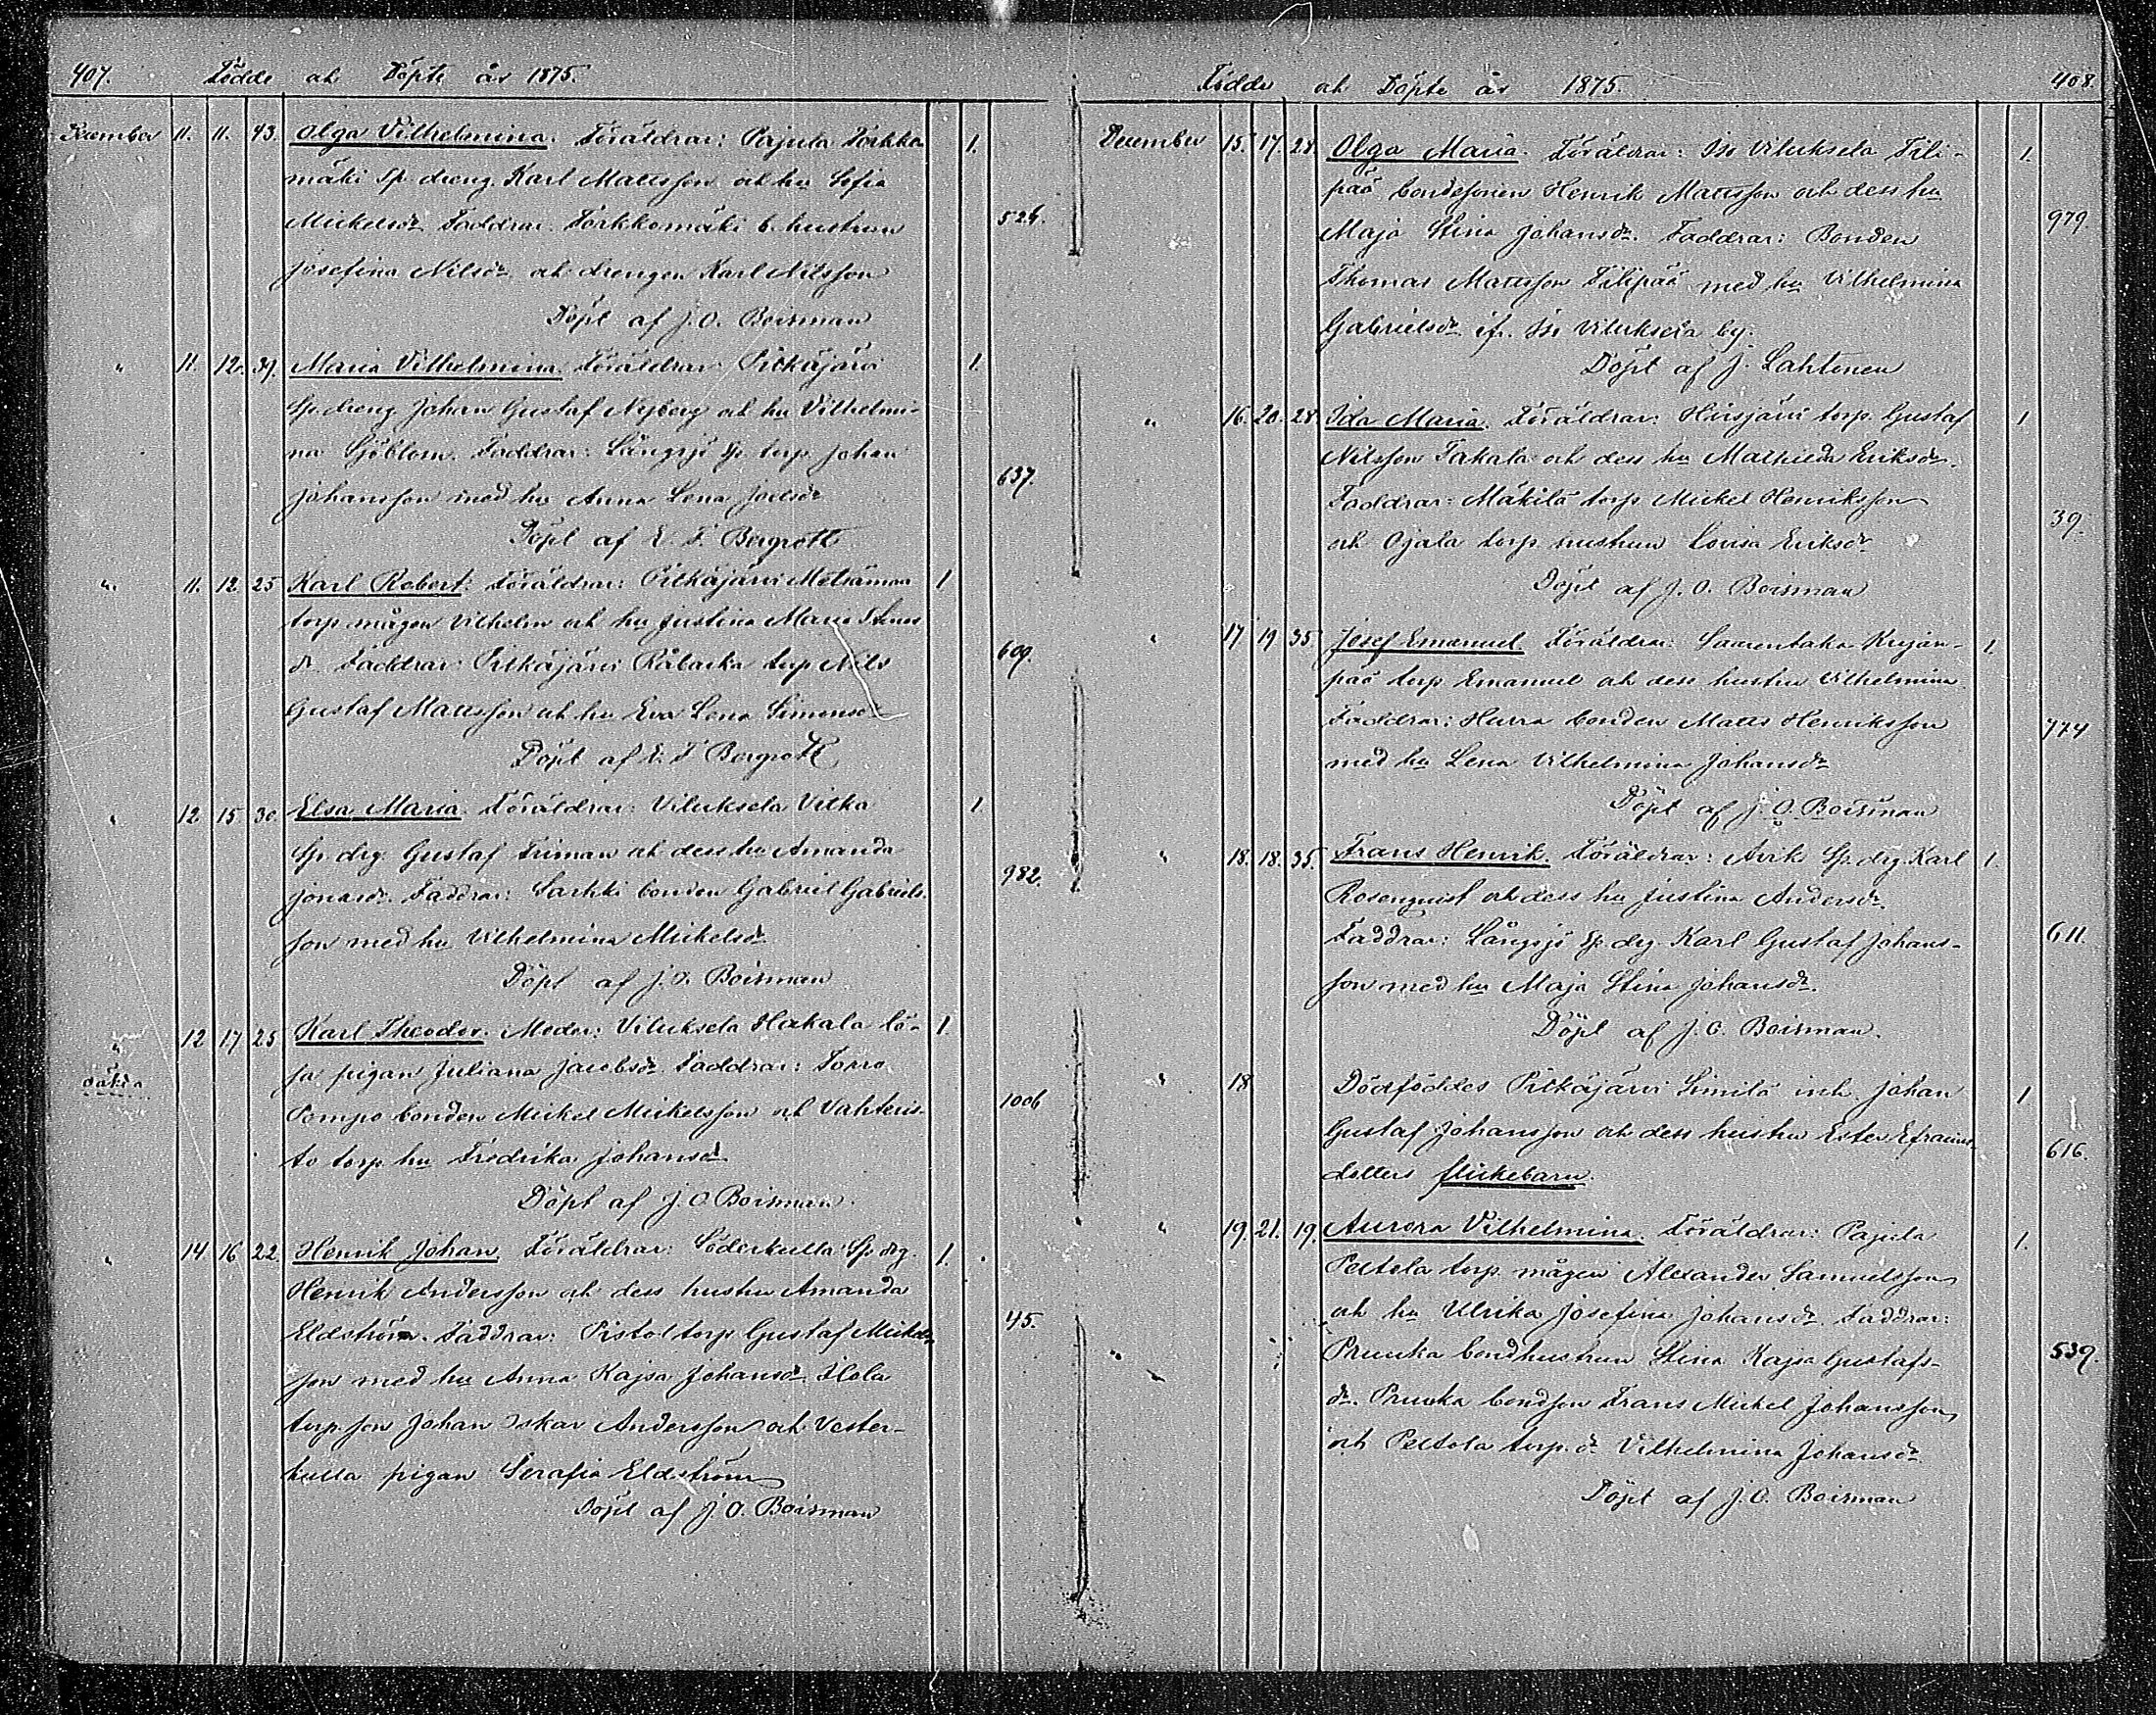 407. Födde och Döpte år 1875.
December 11. 11. 43. Olga Vilhelmina. Föräldrar: Pajula Torkko 1.
mäki Sp. dreng Karl Mattsson och hu Sofia
Mickelsdr. Faddrar: Torkkomäki b. hustrun 526.
Josefina Nilsdr och drengen Karl Nilsson
Döpt af J. O. Boisman
" 11. 12. 39. Maria Vilhelmina. Föräldrar: Pitkäjärvi 1.
Sp. dreng Johan Gustaf Nyberg och hu Vilhelmi-
na Sjöblom. Faddrar: Långsjö Sp. torp. Johan 637.
Johansson med hu Anna Lena Joelsdr
Döpt af E. F. Bergroth
" 11. 12. 25 Karl Robert. Föräldrar: Pitkäjärvi Metsämaa 1
torp mågen Vilhelm och hu Justina Maria
dr. Faddrar: Pitkäjärvi torp Nils 609.
Gustaf Mattsson och hu Eva Lena Simonsdr
Döpt af E. F. Bergroth
" 12. 15. 30. Elsa Maria. Föräldrar: Viluksela Vitka 1.
Sp. drg. Gustaf Friman och dess hu Amanda
Jonasdr. Faddrar: Sarkki bonden Gabriel Gabriels- 982.
son med hu Vilhelmina Mickelsdr
Döpt af J. O. Boisman
" 12 17 25 Karl Theodor. Moder: Viluksela Hakala lö- 1.
oäkta sa pigan Juliana Jacobsdr. Faddrar: Torro
Pompo bonden Mickel Mickelsson och Vahteris- 1006
to torp hu Fredrika Johansdr
Döpt af J. O. Boisman.
" 14 16 22. Henrik Johan. Föräldrar: Söderkulla Sp drg. 1.
Henrik Andersson och dess hustru Amanda
Eldström. Faddrar: Pistol torp. Gustaf Mickels- 45.
son med hu Anna Kajsa Johansdr. Ilola
torp. son Johan Oskar Andersson och Vester-
kulla pigan Serafia Eldström
Döpt af J. O. Boisman
Födde och Döpte år 1875. 408.
December 15. 17. 28. Olga Maria. Föräldrar: Iso Viluksela Fili- 1.
pää bondesonen Henrik Mattsson och dess hu
Maja Stina Johansdr. Faddrar: Bonden 979.
Thomas Mattsson Filipää med hu Vilhelmina
Gabrielsdr if. Iso Viluksela by.
Döpt af J. Lahtonen
" 16. 20. 28. Ida Maria. Föräldrar: Hirsjärvi torp. Gustaf 1
Nilsson Takala och dess hu Mathilda Eriksdr.
Faddrar: Mäkilä torp. Mickel Henriksson 39.
och Ojala torp. hustrun Lovisa Eriksdr.
Döpt af J. O. Boisman
" 17 19 35 Josef Emanuel. Föräldrar: Saarentaka Krijan- 1.
pää torp Emanuel och dess hustru Vilhelmina
Faddrar: Hurra bonden Matts Henriksson 774
med hu Lena Vilhelmina Johansdr
Döpt af J. O. Boisman
" 18. 18. 35. Frans Henrik. Föräldrar: Avik Sp. drg. Karl 1.
Rosenqvist och dess hu Justina Andersdr.
Faddrar: Långsjö Sp. drg. Karl Gustaf Johans- 611.
son med hu Maja Stina Johansdr.
Döpt af J. O. Boisman.
" 18 Dödföddes Pitkäjärvi Simila inh. Johan 1
Gustaf Johansson och dess hustru Ester Efraims- 616.
dotters flickebarn.
" 19. 21. 19. Aurora Vilhelmina. Föräldrar: Pajula 1.
Peltola torp. mågen Alexander Samuelsson
och hu Ulrika Josefina Johansdr. Faddrar:
Pruuka bondhustrun Stina Kajsa Gustafs- 539.
dr. Pruuka bondson Frans Mickel Johansson
och Peltola torp. dr Vilhelmina Johansdr.
Döpt af J. O. Boisman